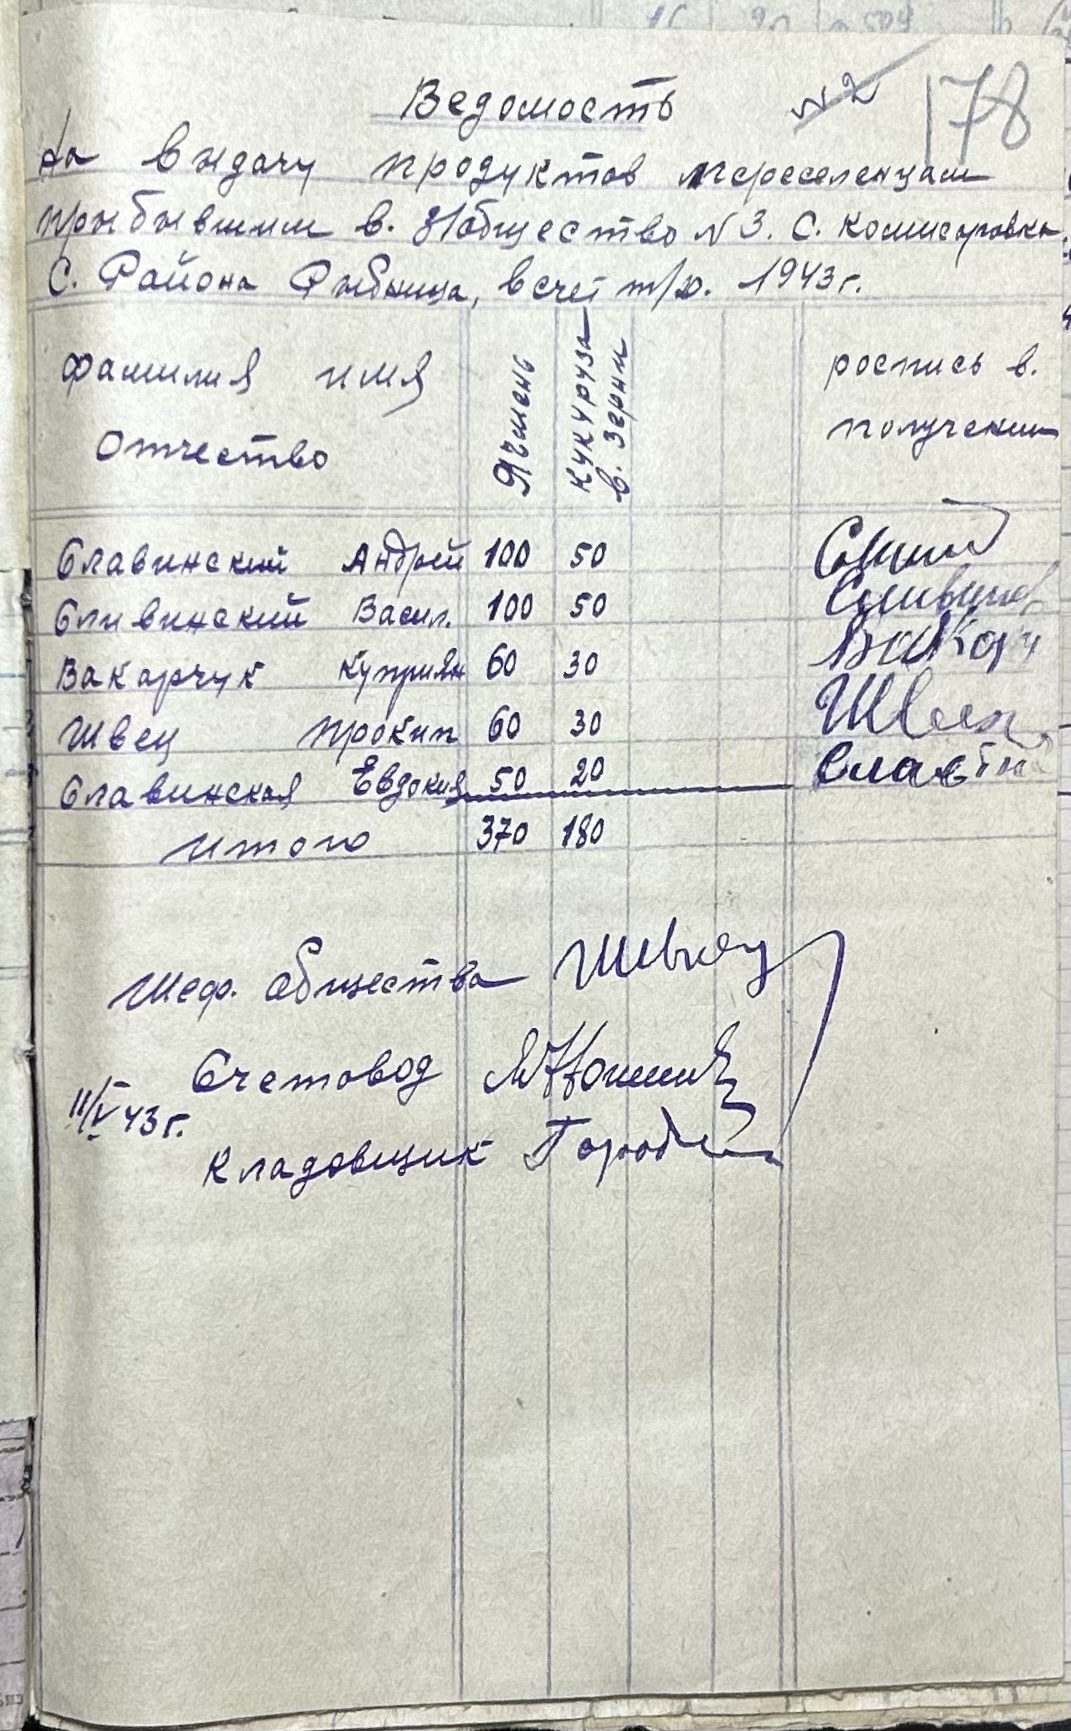 Ведомость №2 178
на выдачу продуктов переселенцам
прыбывшим в. общество №3. С. Комисаровка.
С. Района Рыбница, в счет т/д. 1943 г.
фамилия имя Отчество
Ячмень
Кукуруза в. зерни
роспись в. получении
Славинский Андрей 100 50
Сливинский Васил. 100 50
Вакарчук Куприян 60 30 Вакарч
Швец Прокип 60 30 Швец
Славинская Евдокия 50 20 Слав
Итого 370 180
Шеф. общества
Счетовод
11/V 43 г.
Кладовщик